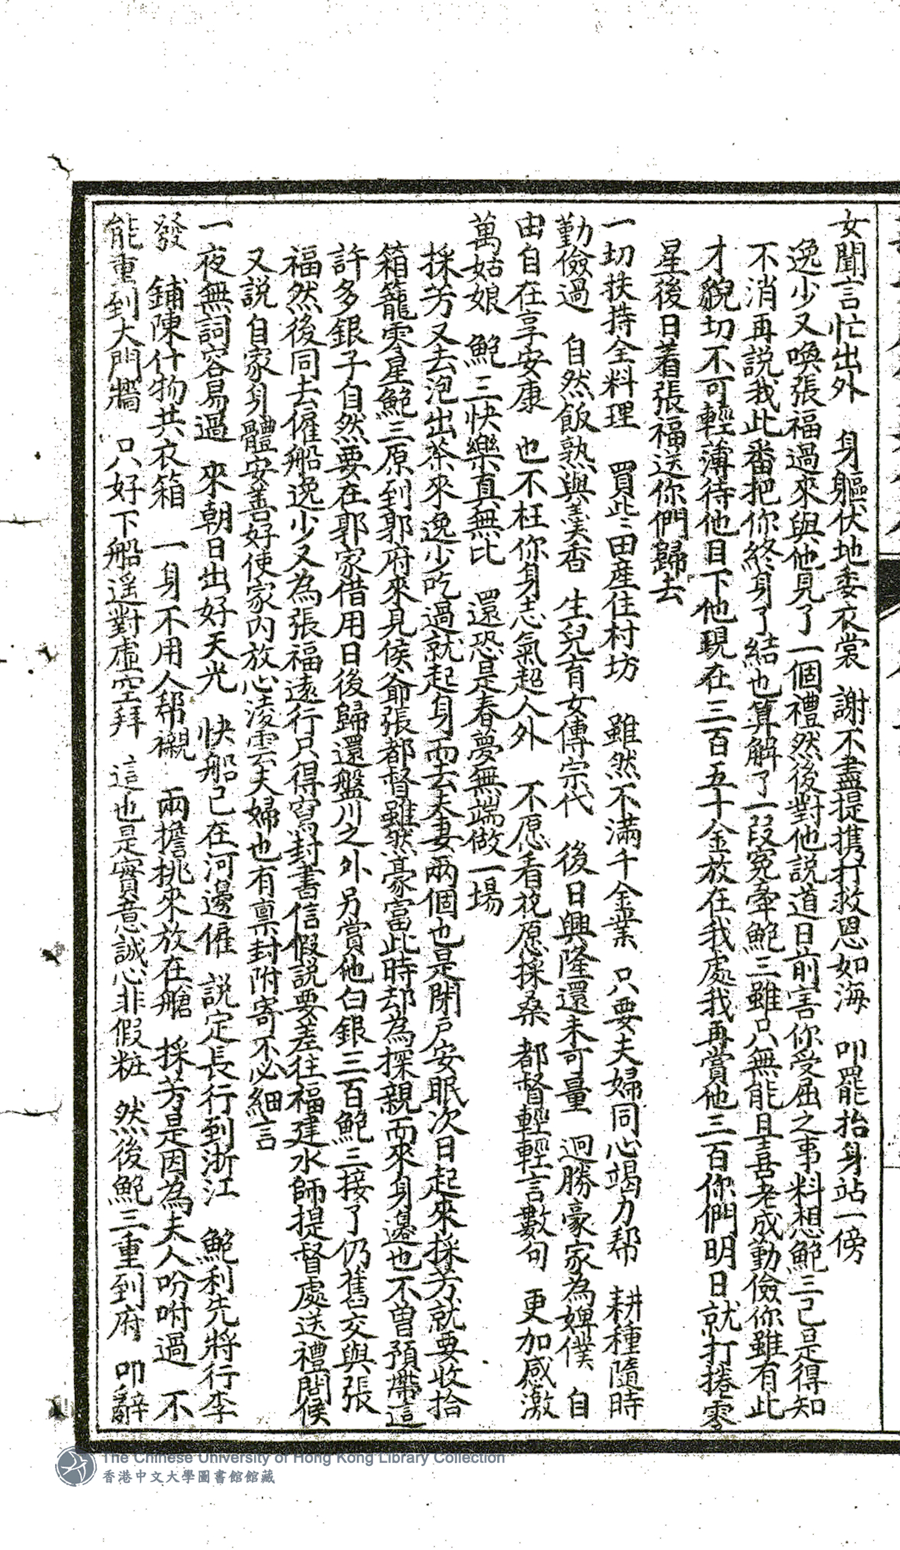 女聞言忙出外　身軀伏地委衣裳　謝不盡提携打救恩如海　叩罷抬身站一傍
逸少又喚張福過來與他見了一個禮然後對他説道日前害你受屈之事料想鮑三已是得知
不消再説我此番把你終身了結也算解了一段冤牽鮑三雖只無能且喜老成勤儉你雖有此
才貌切不可輕薄待他目下他現在三百五十金放在我處我再賞他三百你們明日就打捲零
星後日着張福送你們歸去
一切扶持全料理　買些田産住村坊　雖然不滿千金業　只要夫婦同心竭力帮　耕種隨時
勤儉過　自然飯熟與羹香　生兒育女傳宗代　後日興隆還未可量　迥勝豪家為婢僕　自
由自在享安康　也不枉你身志氣超人外　不愿看花愿採桑　都督輕輕言數句　更加感激
萬姑娘　鮑三快樂真無比　還恐是春夢無端做一場
採芳又去泡出茶來逸少吃過就起身而去夫妻兩個也是閉戶安眠次日起來採芳就要收拾
箱籠零星鮑三原到郭府來見侯爺張都督雖然豪富此時却為探親而來身邊也不曾預帶這
許多銀子自然要在郭家借用日後歸還盤川之外另賞他白銀三百鮑三接了仍舊交與張
福然後同去僱船逸少又為張福遠行只得寫封書信假説要差往福建水師提督處送禮問候
又説自家身體安善好使家內放心淩雲夫婦也有稟封附寄不必細言
一夜無詞容易過　來朝日出好天光　快船已在河邊僱　説定長行到浙江　鮑利先將行李
發　鋪陳什物共衣箱　一身不用人帮襯　兩擔挑來放在艙　採芳是因為夫人吩咐過　不
能重到大門牆　只好下船遥對虛空拜　這也是實意誠心非假粧　然後鮑三重到府　叩辭
The Chinese University of Hong Kong Library Collection
香港中文大學圖書館館藏